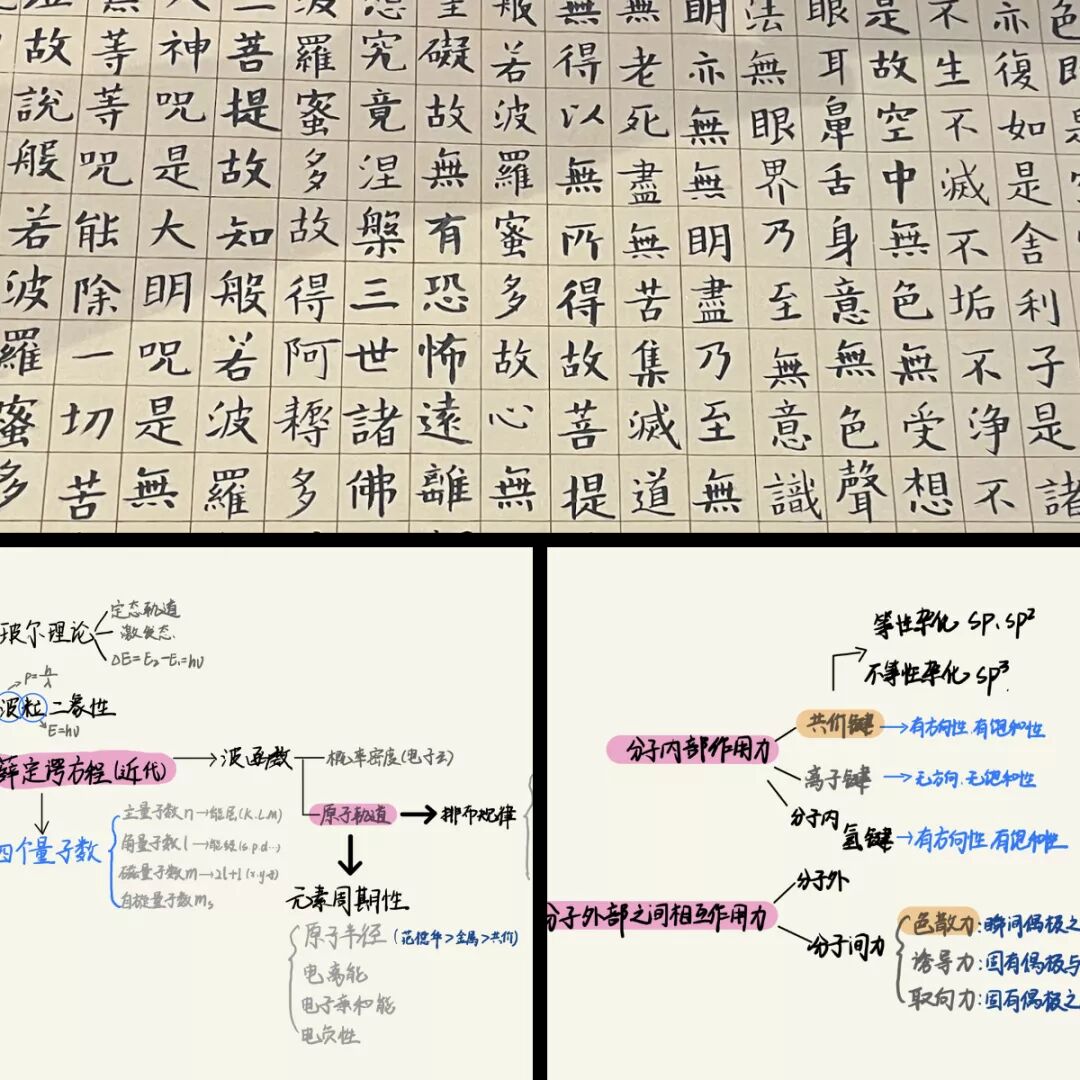 色即是空
亦復如是舍利子是諸
不生不滅不垢不浄不
是故空中無色無受想
眼耳鼻舌身意無色聲
法無眼界乃至無意識
明亦無無明盡乃至無
無老死盡無苦集滅道
無得以無所得故菩提
般若波羅蜜多故心無
礙故無有恐怖遠離
究竟涅槃三世諸佛
波羅蜜多故得阿耨多
三菩提故知般若波羅
神呪是大明呪是無
等等呪能除一切苦
故說般若波羅蜜多
玻尔理论
定态轨道
激发态.
ΔE=E₂-E₁=hν
P=h/λ
波粒二象性
E=hν
薛定谔方程(近代)
波函数
概率密度(电子云)
原子轨道
排布规律
四个量子数
主量子数n→能层(K.L.M)
角量子数l→能级(s.p.d…)
磁量子数m→2l+1(x.y.z)
自旋量子数mₛ
元素周期性
原子半径(范德华>金属>共价)
电离能
电子亲和能
电负性
等性杂化 sp、sp²
不等性杂化 sp³.
分子内部作用力
共价键→有方向性.有饱和性
离子键→无方向.无饱和性
分子内
氢键→有方向性 有饱和性
分子外部之间相互作用力
分子外
分子间力
色散力:瞬间偶极之
诱导力:固有偶极与
取向力:固有偶极之